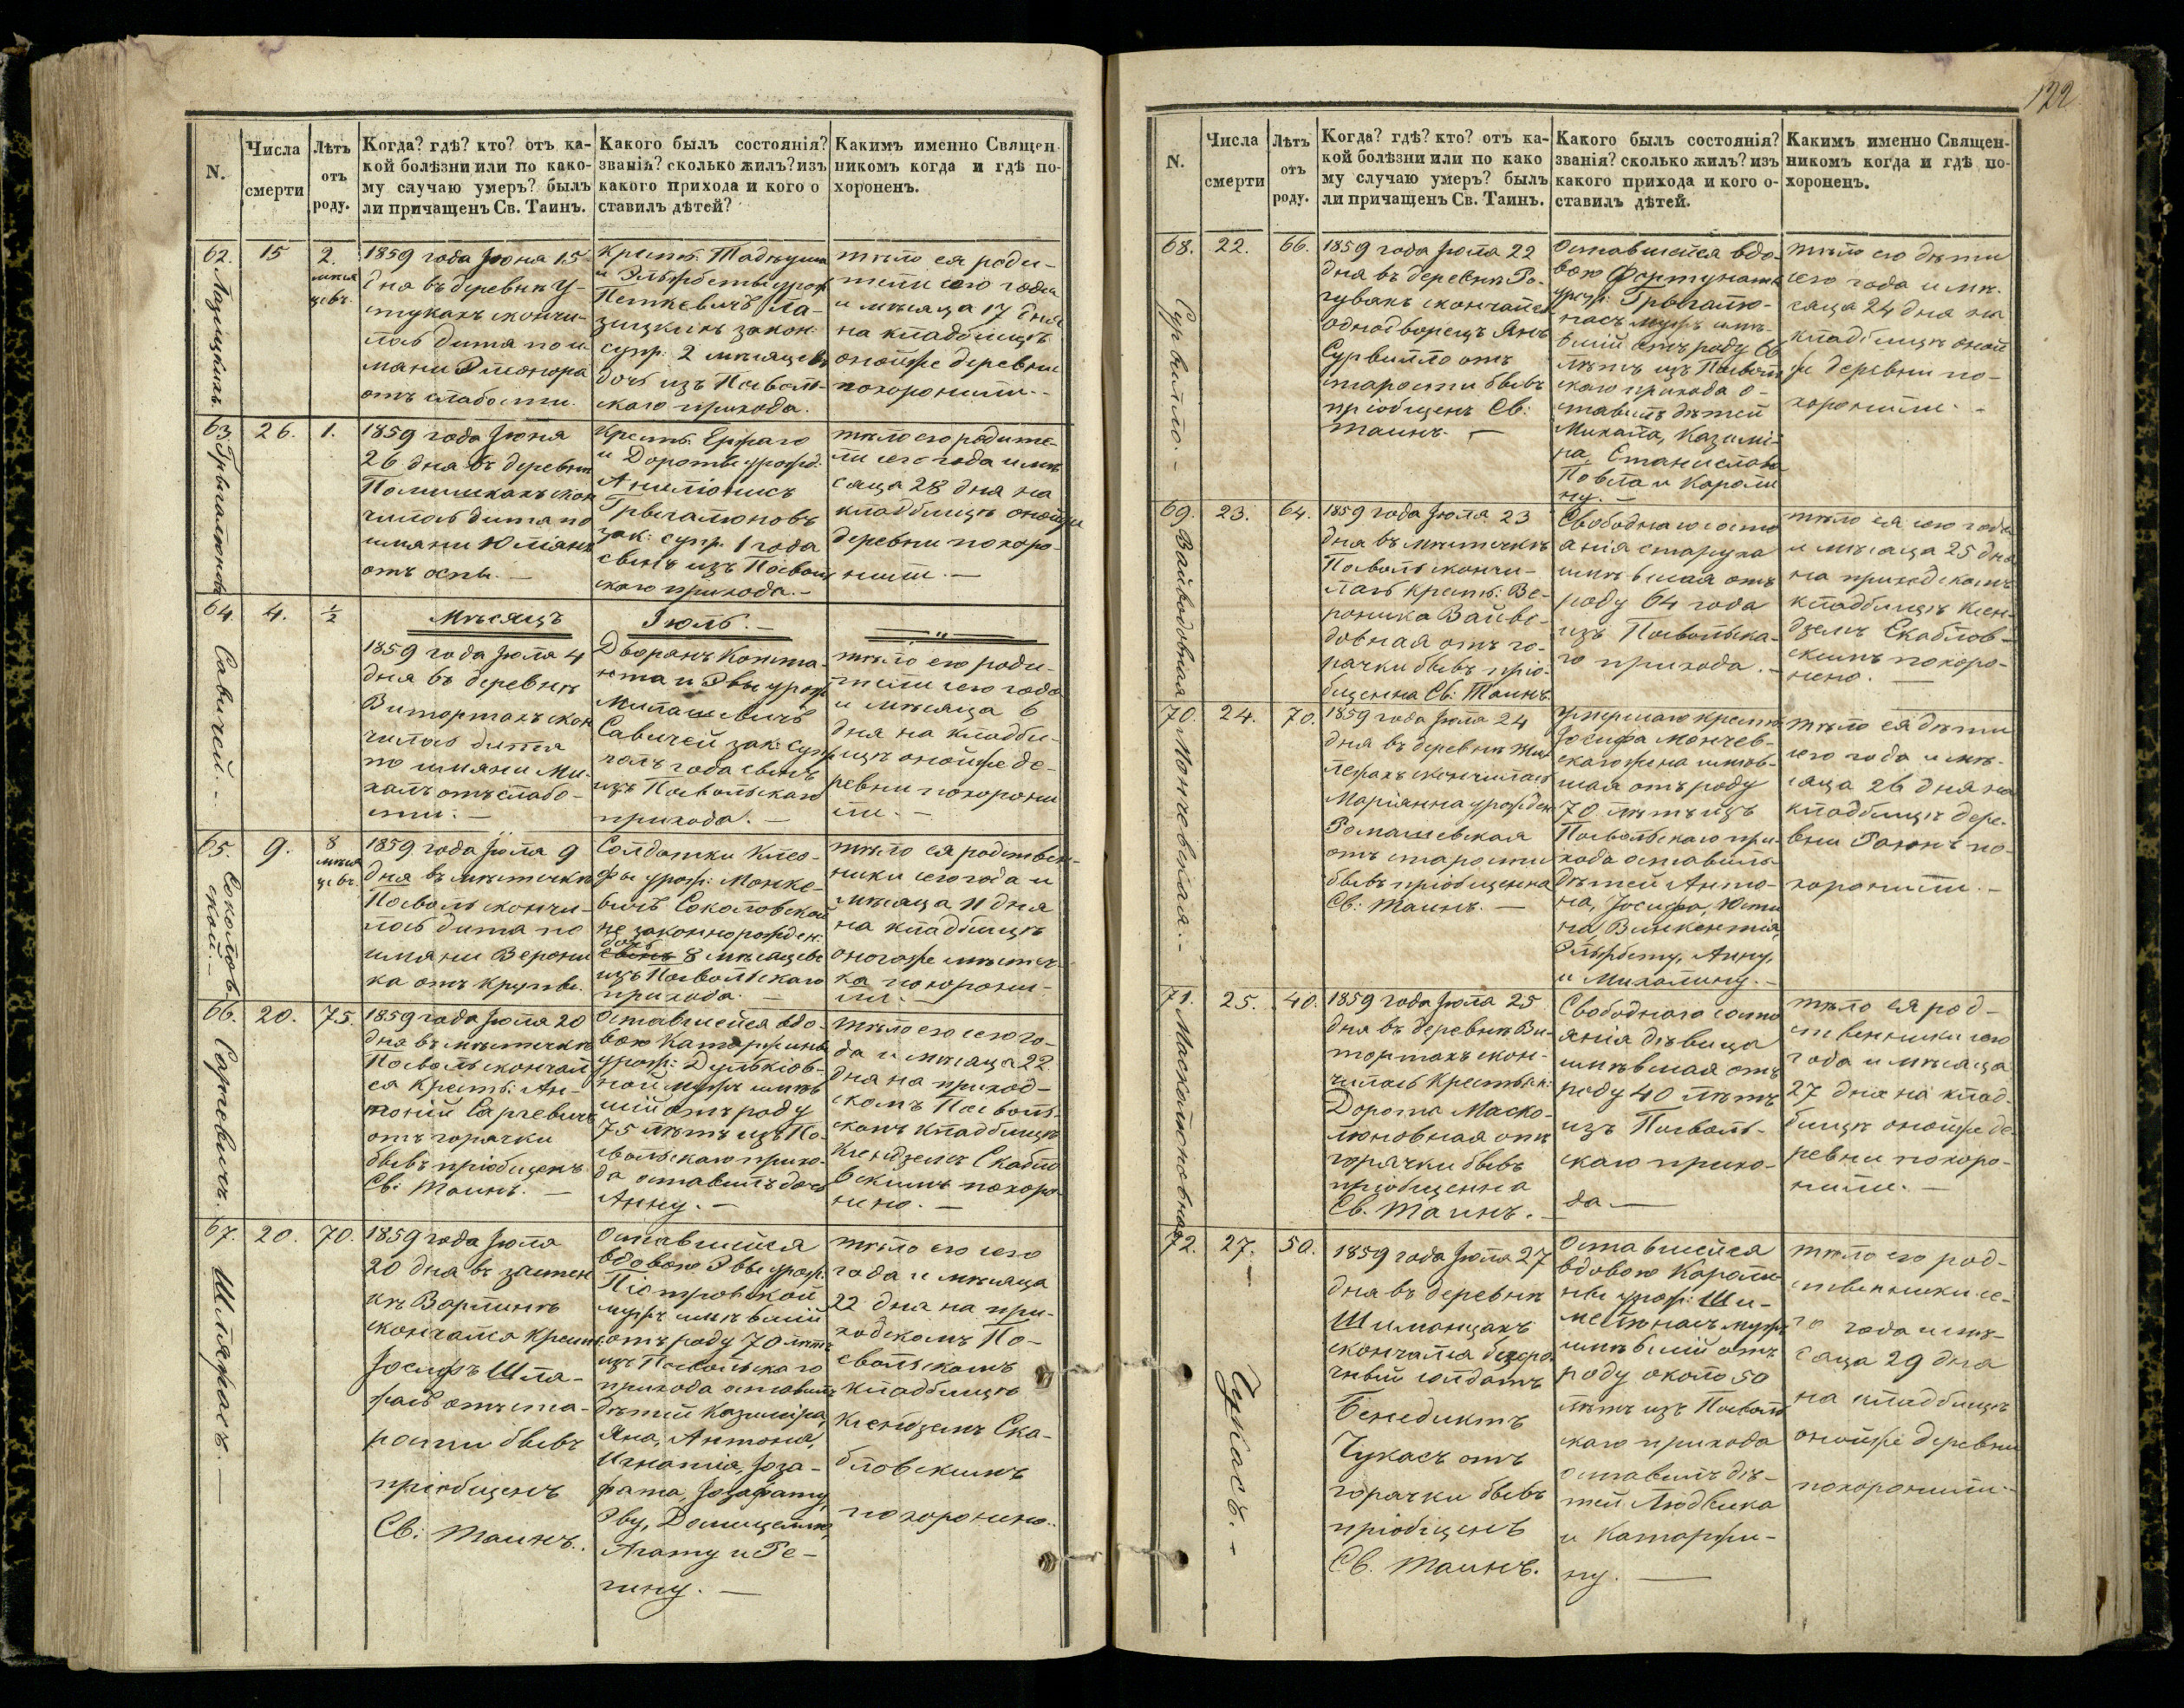 122
N.
Числа
смерти
Лѣтъ
отъ
роду.
Когда? гдѣ? кто? отъ ка-
кой болѣзни или по како-
му случаю умеръ? былъ
ли причащенъ Св. Таинъ.
Какого былъ состоянія?
званія? сколько жилъ? изъ
какого прихода и кого о
ставилъ дѣтей?
Каким именно Священ
никомъ когда и гдѣ по-
хороненъ.
62.
15
2.
мѣся
цевъ.
1859 года Іюня 15
дня въ деревнѣ
скончи-
лась дитя по и-
мани Элеонора
отъ слабости.
Крест. Тадеуша
и Эльжбеты урож
Петкевичъ Ла-
закон:
супр: 2 мѣсяцевъ
дочь изъ Поволь-
скаго прихода.
тѣло ея роди-
тели сего года
и мѣсяца 17 дня
на кладбищѣ
онойже деревни
похоронили.
63.
26.
1.
1859 года Іюня
26 дня въ деревнѣ
скон
чилась дитя по
имяни Юліянъ
отъ оспы.
Крест.
и Дороты урожд:
Грыгалюновъ
зак: супр. 1 года
сынъ изъ Поволь
скаго прихода.
тѣло его родите-
ли сего года и мѣ
сяца 28 дня на
кладбищѣ онойже
деревни похоро-
нили.
64
4.
½
Савичей.
Мѣсяцъ
Іюль.
1859 года Іюля 4
дня въ деревнѣ
Витортахъ скон
чилась дитя
по имяни Ми-
халъ отъ слабо-
сти.
Дворянъ Конста-
нта и Эвы урож
Милашевичъ
Савичей зак: супр
полъ года сынъ
изъ Повольскаго
прихода.
тѣло его роди-
тели сего года
и мѣсяца 6
дня на кладби-
щѣ онойже де-
ревни похорони
ли.
65.
9.
8
мѣся
цевъ.
Соколов-
ской.
1859 года Іюля 9
дня въ мѣстечкѣ
Поволь скончи-
лась дитя по
имяни Верони
ка отъ крупы.
Солдатки Клео-
фы урож: Монке-
вичъ Соколовской
не законнорожден:
дочь
сынъ 8 мѣсяцевъ
изъ Повольскаго
прихода.
тѣло ея родствен-
ники сего года и
мѣсяца 11 дня
на кладбищѣ
оногоже мѣстеч-
ка похорони-
ли.
66.
20.
75.
1859 года Іюля 20
дня въ мѣстечкѣ
Поволь скончал
ся крест: Ан-
тоній
отъ горячки
бывъ пріобщенъ
Св: Таинъ.
Оставшейся вдо-
вою Катаржины
урож:
ной мужъ имѣв
шій отъ роду
75 лѣтъ изъ По-
вольскаго прихо-
да оставилъ дочь
Анну.
тѣло его сего го-
да и мѣсяца 22
дня на приход-
скомъ Поволь-
скомъ кладбищѣ
Ксендземъ Скабло
вскимъ похоро-
нено.
67.
20.
70.
Шляжасъ.
1859 года Іюля
20 дня въ застен
кѣ Ворпинкъ
скончался крест
Іосифъ Шля-
жасъ отъ ста-
рости бывъ
пріобщенъ
Св: Таинъ.
Оставшейся
вдовою Эвы урож.
Піотровской
мужъ имѣвшій
отъ роду 70 лѣтъ
изъ Повольскаго
прихода оставилъ
дѣтей Казимира,
Яна, Антона,
Игнатія, Іоза-
фата, Іозафату,
Эву, Домицелю,
Агату и Ре-
гину.
тѣло его сего
года и мѣсяца
22 дня на при-
ходскомъ По-
вольскомъ
кладбищѣ
Ксендземъ Ска-
бловскимъ
похоронено.
N.
Числа
смерти
Лѣтъ
отъ
роду.
Когда? гдѣ? кто? отъ ка-
кой болѣзни или по како
му случаю умеръ? былъ
ли причащенъ Св. Таинъ.
Какого былъ состоянія?
званія? сколько жилъ? изъ
какого прихода и кого о-
ставилъ дѣтей.
Каким именно Священ-
никомъ когда и гдѣ по-
хороненъ.
68.
22.
66.
Сурвилло.
1859 года Іюля 22
дня въ деревнѣ Ро-
гувкѣ скончался
однодворецъ Янъ
Сурвилло отъ
старости бывъ
пріобщенъ Св:
Таинъ.
Оставшейся вдо-
вою Фортунаты
урож: Грыгалю-
насъ мужъ имѣ-
вшій отъ роду 66
лѣтъ изъ Поволь
скаго прихода о-
ставилъ дѣтей
Михала, Казимі-
ра, Станислава
Повла и Кароли
ну.
тѣло его дѣти
сего года и мѣ-
сяца 24 дня на
кладбищѣ оной
же деревни по-
хоронили.
69.
23.
64.
Вайводовная
1859 года Іюля 23
дня въ мѣстечкѣ
Поволь скончи-
лась крест: Ве-
роника Вайво-
довная отъ го-
рячки бывъ пріо-
бщенна Св: Таинъ.
Свободнаго состо
янія старуха
имѣвшая отъ
роду 64 года
изъ Повольска-
го прихода.
тѣло ея сего года
и мѣсяца 25 дня
на приходскомъ
кладбищѣ Ксен-
дземъ Скаблов-
скимъ похоро-
нено.
70.
24.
70.
Мончевская.
1859 года Іюля 24
дня въ деревнѣ
скончилась
Маріянна урожден
Ромашевская
отъ старости
бывъ пріобщенна
Св: Таинъ.
Умершаго крест
Іосифа Мончев-
скаго жена имѣв-
шая отъ роду
70 лѣтъ изъ
Повольскаго при
хода оставила
дѣтей Анто-
на, Іосифа, Юсти
на Винкентія,
Эльжбету, Анну,
и Михалину.
тѣло ея дѣти
сего года и мѣ-
сяца 26 дня на
кладбищѣ дере-
вни по-
хоронили.
71.
25.
40.
Масколюновная
1859 года Іюля 25
дня въ деревнѣ Ви-
тортахъ скон-
чилась крестьян:
Дорота Маско-
люновная отъ
горячки бывъ
пріобщенна
Св. Таинъ.
Свободнаго состо
янія дѣвица
имѣвшая отъ
роду 40 лѣтъ
изъ Поволь-
скаго прихо-
да.
тѣло ея род-
ственники сего
года и мѣсяца
27 дня на клад-
бищѣ онойже де-
ревни похоро-
нили.
72.
27.
50.
Чукасъ.
1859 года Іюля 27
дня въ деревнѣ
Шиманцахъ
скончался безсро
чный солдатъ
Бенедиктъ
Чукасъ отъ
горячки бывъ
пріобщенъ
Св. Таинъ.
Оставшейся
вдовою Кароли
ны урож:
мужъ
имѣвшій отъ
роду около 50
лѣтъ изъ Поволь
скаго прихода
оставилъ дѣ-
тей Людвика
и Катаржи-
ну.
тѣло его род-
ственники се-
го года и мѣ-
сяца 29 дня
на кладбищѣ
онойже деревни
похоронили.